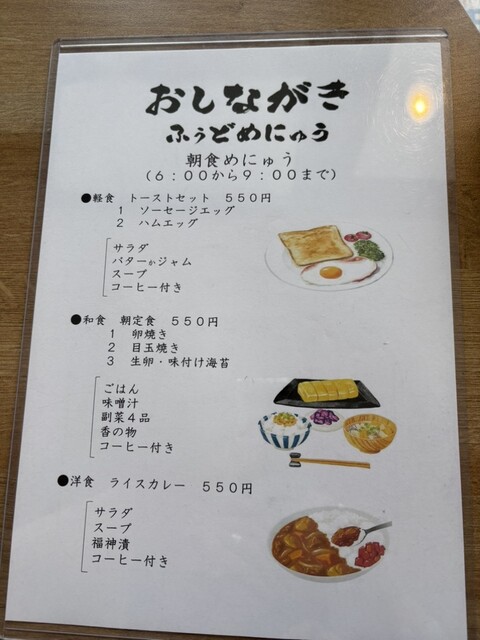 おしながき
ふぅどめにゅう
朝食めにゅう
(6:00から9:00まで)
●軽食　トーストセット　550円
1　ソーセージエッグ
2　ハムエッグ
サラダ
バターかジャム
スープ
コーヒー付き
●和食　朝定食　550円
1　卵焼き
2　目玉焼き
3　生卵・味付け海苔
ごはん
味噌汁
副菜4品
香の物
コーヒー付き
●洋食　ライスカレー　550円
サラダ
スープ
福神漬
コーヒー付き